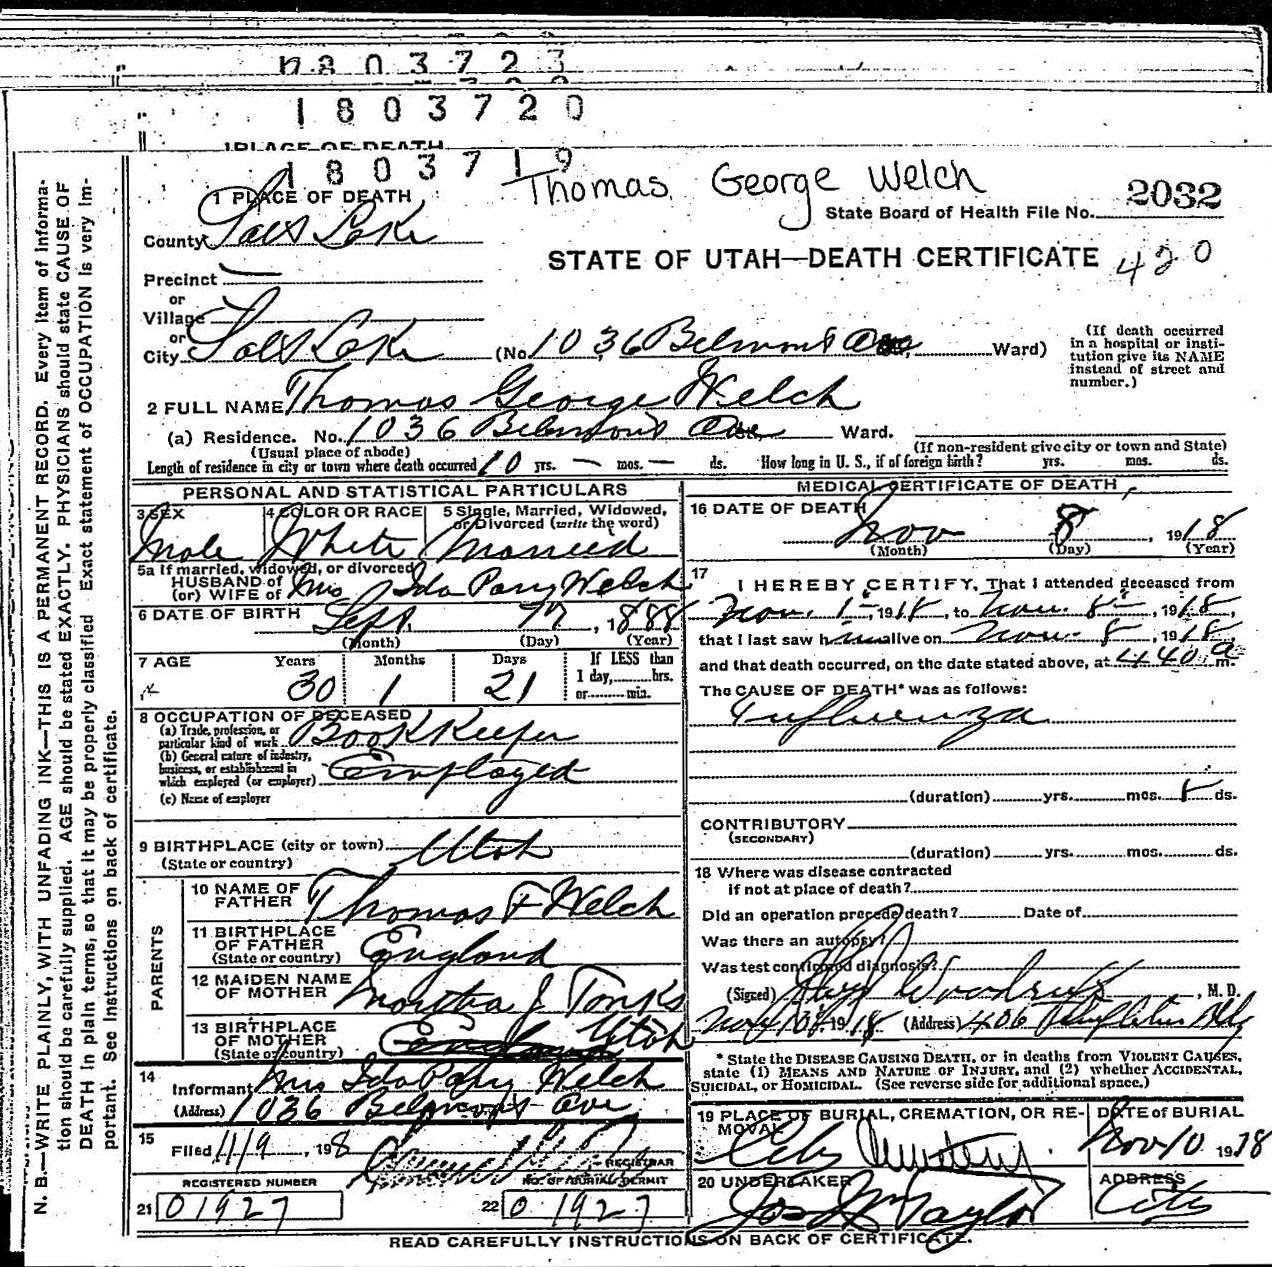 1803723
1803720
PLACE OF DEATH
1803719
Thomas George Welch
2032
State Board of Health File No.
1 PLACE OF DEATH
County Salt Lake
STATE OF UTAH—DEATH CERTIFICATE 420
Precinct
or
Village
or
City Salt Lake (No. 1036 Belmont Ave Ward)
(If death occurred in a hospital or institution give its NAME instead of street and number.)
2 FULL NAME Thomas George Welch
(a) Residence. No. 1036 Belmont Ave Ward.
(Usual place of abode) (If non-resident give city or town and State)
Length of residence in city or town where death occurred 10 yrs. — mos. — ds. How long in U. S., if of foreign birth? yrs. mos. ds.
PERSONAL AND STATISTICAL PARTICULARS
3 SEX 4 COLOR OR RACE 5 Single, Married, Widowed, or Divorced (write the word)
Male White Married
5a If married, widowed, or divorced
HUSBAND of
(or) WIFE of Mrs Ida Parry Welch
6 DATE OF BIRTH Sept. 17, 1888
(Month) (Day) (Year)
7 AGE Years Months Days If LESS than
1 day, hrs.
or min.
30 1 21
8 OCCUPATION OF DECEASED
(a) Trade, profession, or particular kind of work Book Keeper
(b) General nature of industry, business, or establishment in which employed (or employer) Employed
(c) Name of employer
9 BIRTHPLACE (city or town) Utah
(State or country)
PARENTS
10 NAME OF FATHER Thomas F Welch
11 BIRTHPLACE OF FATHER England
(State or country)
12 MAIDEN NAME OF MOTHER Martha J Tonks
13 BIRTHPLACE OF MOTHER England Utah
(State or country)
14
Informant Mrs Ida Parry Welch
(Address) 1036 Belmont Ave
15
Filed 11/9, 1918
REGISTRAR
REGISTERED NUMBER NO. OF BURIAL PERMIT
21 01927 22 01927
MEDICAL CERTIFICATE OF DEATH
16 DATE OF DEATH
Nov 8, 1918
(Month) (Day) (Year)
17
I HEREBY CERTIFY, That I attended deceased from
Nov. 1-, 1918, to Nov. 8-, 1918,
that I last saw him alive on Nov. 8, 1918,
and that death occurred, on the date stated above, at 4 40 a m.
The CAUSE OF DEATH* was as follows:
Influenza
(duration) yrs. mos. 8 ds.
CONTRIBUTORY
(SECONDARY)
(duration) yrs. mos. ds.
18 Where was disease contracted
if not at place of death?
Did an operation precede death? Date of
Was there an autopsy?
Was test confirmed diagnosis?
(Signed) Woodruff, M. D.
Nov 1918 (Address) 406
* State the DISEASE CAUSING DEATH, or in deaths from VIOLENT CAUSES,
state (1) MEANS AND NATURE OF INJURY, and (2) whether ACCIDENTAL,
SUICIDAL, or HOMICIDAL. (See reverse side for additional space.)
19 PLACE OF BURIAL, CREMATION, OR REMOVAL DATE of BURIAL
City Cemetery. Nov 10 1918
20 UNDERTAKER ADDRESS
Jos Wm Taylor City
READ CAREFULLY INSTRUCTIONS ON BACK OF CERTIFICATE.
N. B.—WRITE PLAINLY, WITH UNFADING INK—THIS IS A PERMANENT RECORD. Every item of information should be carefully supplied. AGE should be stated EXACTLY. PHYSICIANS should state CAUSE OF DEATH in plain terms, so that it may be properly classified Exact statement of OCCUPATION is very important. See instructions on back of certificate.